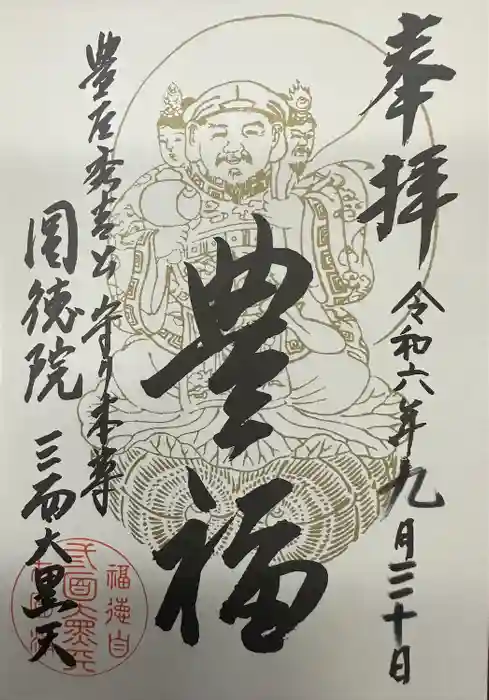 奉拝
令和六年九月三十日
豊福
豊臣秀吉公 守り本尊
圓徳院
三面大黒天
福徳自
三面大黒天